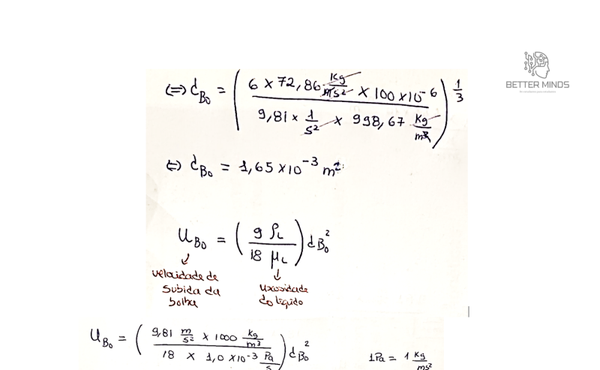 BETTER MINDS
⇔ d_B₀ = ( (6 × 72,86 kg/ms² × 100 × 10⁻⁶) / (9,81 × 1/s² × 998,67 kg/m³) )^(1/3)
⇔ d_B₀ = 1,65 × 10⁻³ m²
U_B₀ = ( 9 ρ_L / 18 μ_L ) d_B₀²
velocidade de subida da bolha
viscosidade do líquido
U_B₀ = ( (9,81 m/s² × 1000 kg/m³) / (18 × 1,0 × 10⁻³ Pa/s) ) d_B₀²
1 Pa = 1 kg/ms²